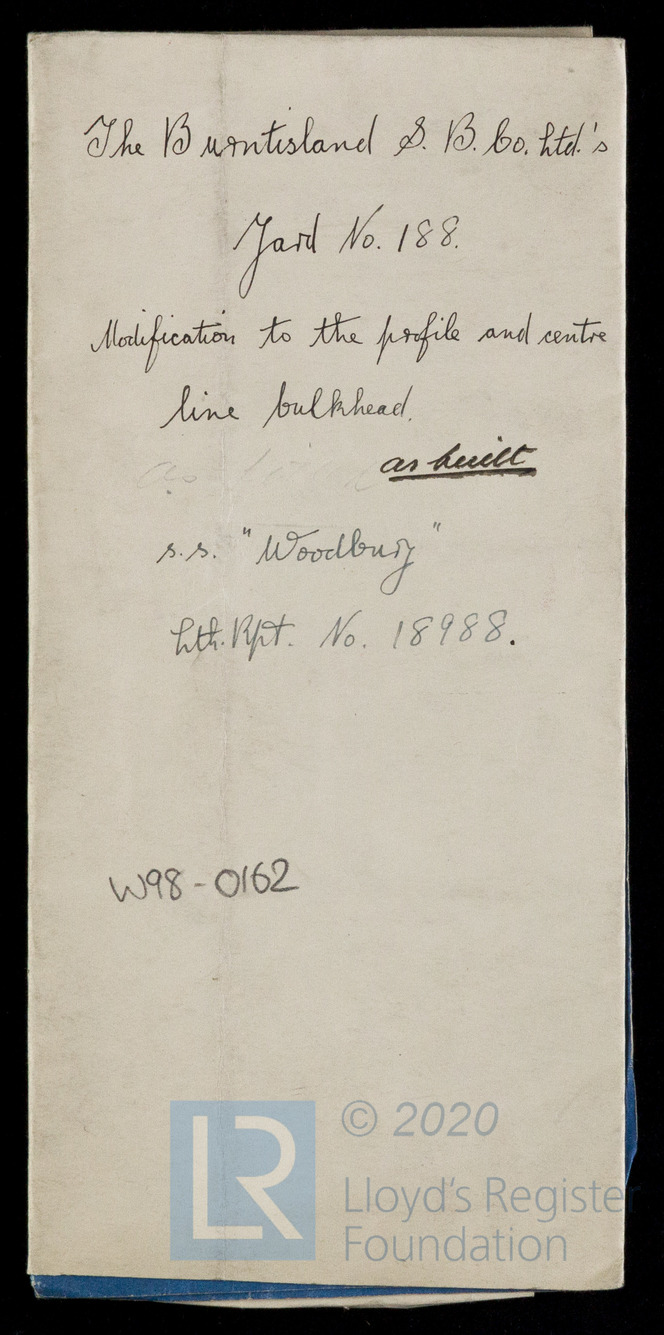 The Burntisland S. B. Co. Ltd.'s
Yard No. 188.
Modification to the profile and centre
line bulkhead.
as built
s.s. "Woodbury"
Lth. Rpt. No. 18988.
W98-0162
LR
© 2020
Lloyd's Register
Foundation